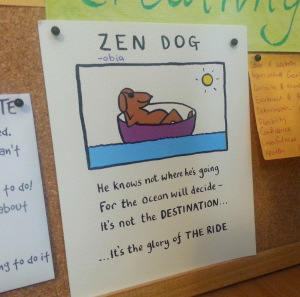 Creativity
ZEN DOG
-obia
He knows not where he's going
For the ocean will decide -
It's not the DESTINATION...
...It's the glory of THE RIDE
TE
ed.
an't
to do!
about
ng to do it
Flexibility
Confidence